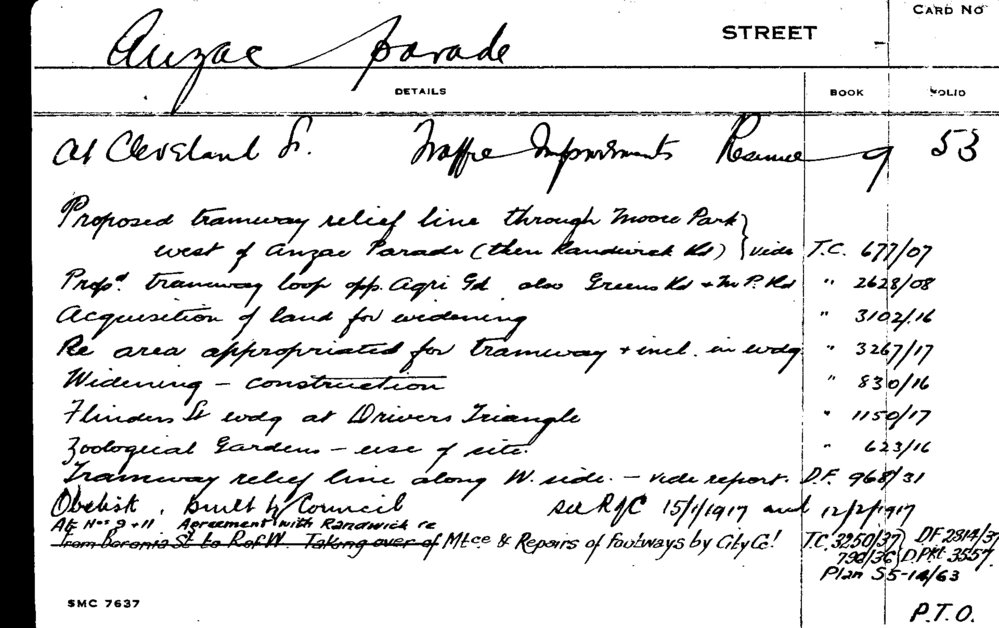 CARD NO
Anzac Parade STREET
DETAILS BOOK FOLIO
At Cleveland St. Traffic Improvements Resume 9 53
Proposed tramway relief line through Moore Park
west of Anzac Parade (then Randwick Rd) } vide T.C. 677/07
Propd. tramway loop opp. Agri Gd also Greens Rd + M.P. Rd " 2628/08
Acquisition of land for widening " 3102/16
Re area appropriated for tramway + incl. in wdg " 3267/17
Widening – construction " 830/16
Flinders St wdg at Drivers Triangle " 1150/17
Zoological Gardens – use of site. " 623/16
Tramway relief line along W. side. – vide report. D.F. 968/31
Obelisk, built by Council see RofC 15/1/1917 and 12/2/1917
At Nos 9 + 11 Agreement with Randwick re
from Boronia St to R of W Taking over of Mtce & Repairs of Footways by City Cl. T.C. 3250/37 } DF 2814/37
796/36 } D.Pkt 3557.
Plan S5-14/63
SMC 7637
P.T.O.